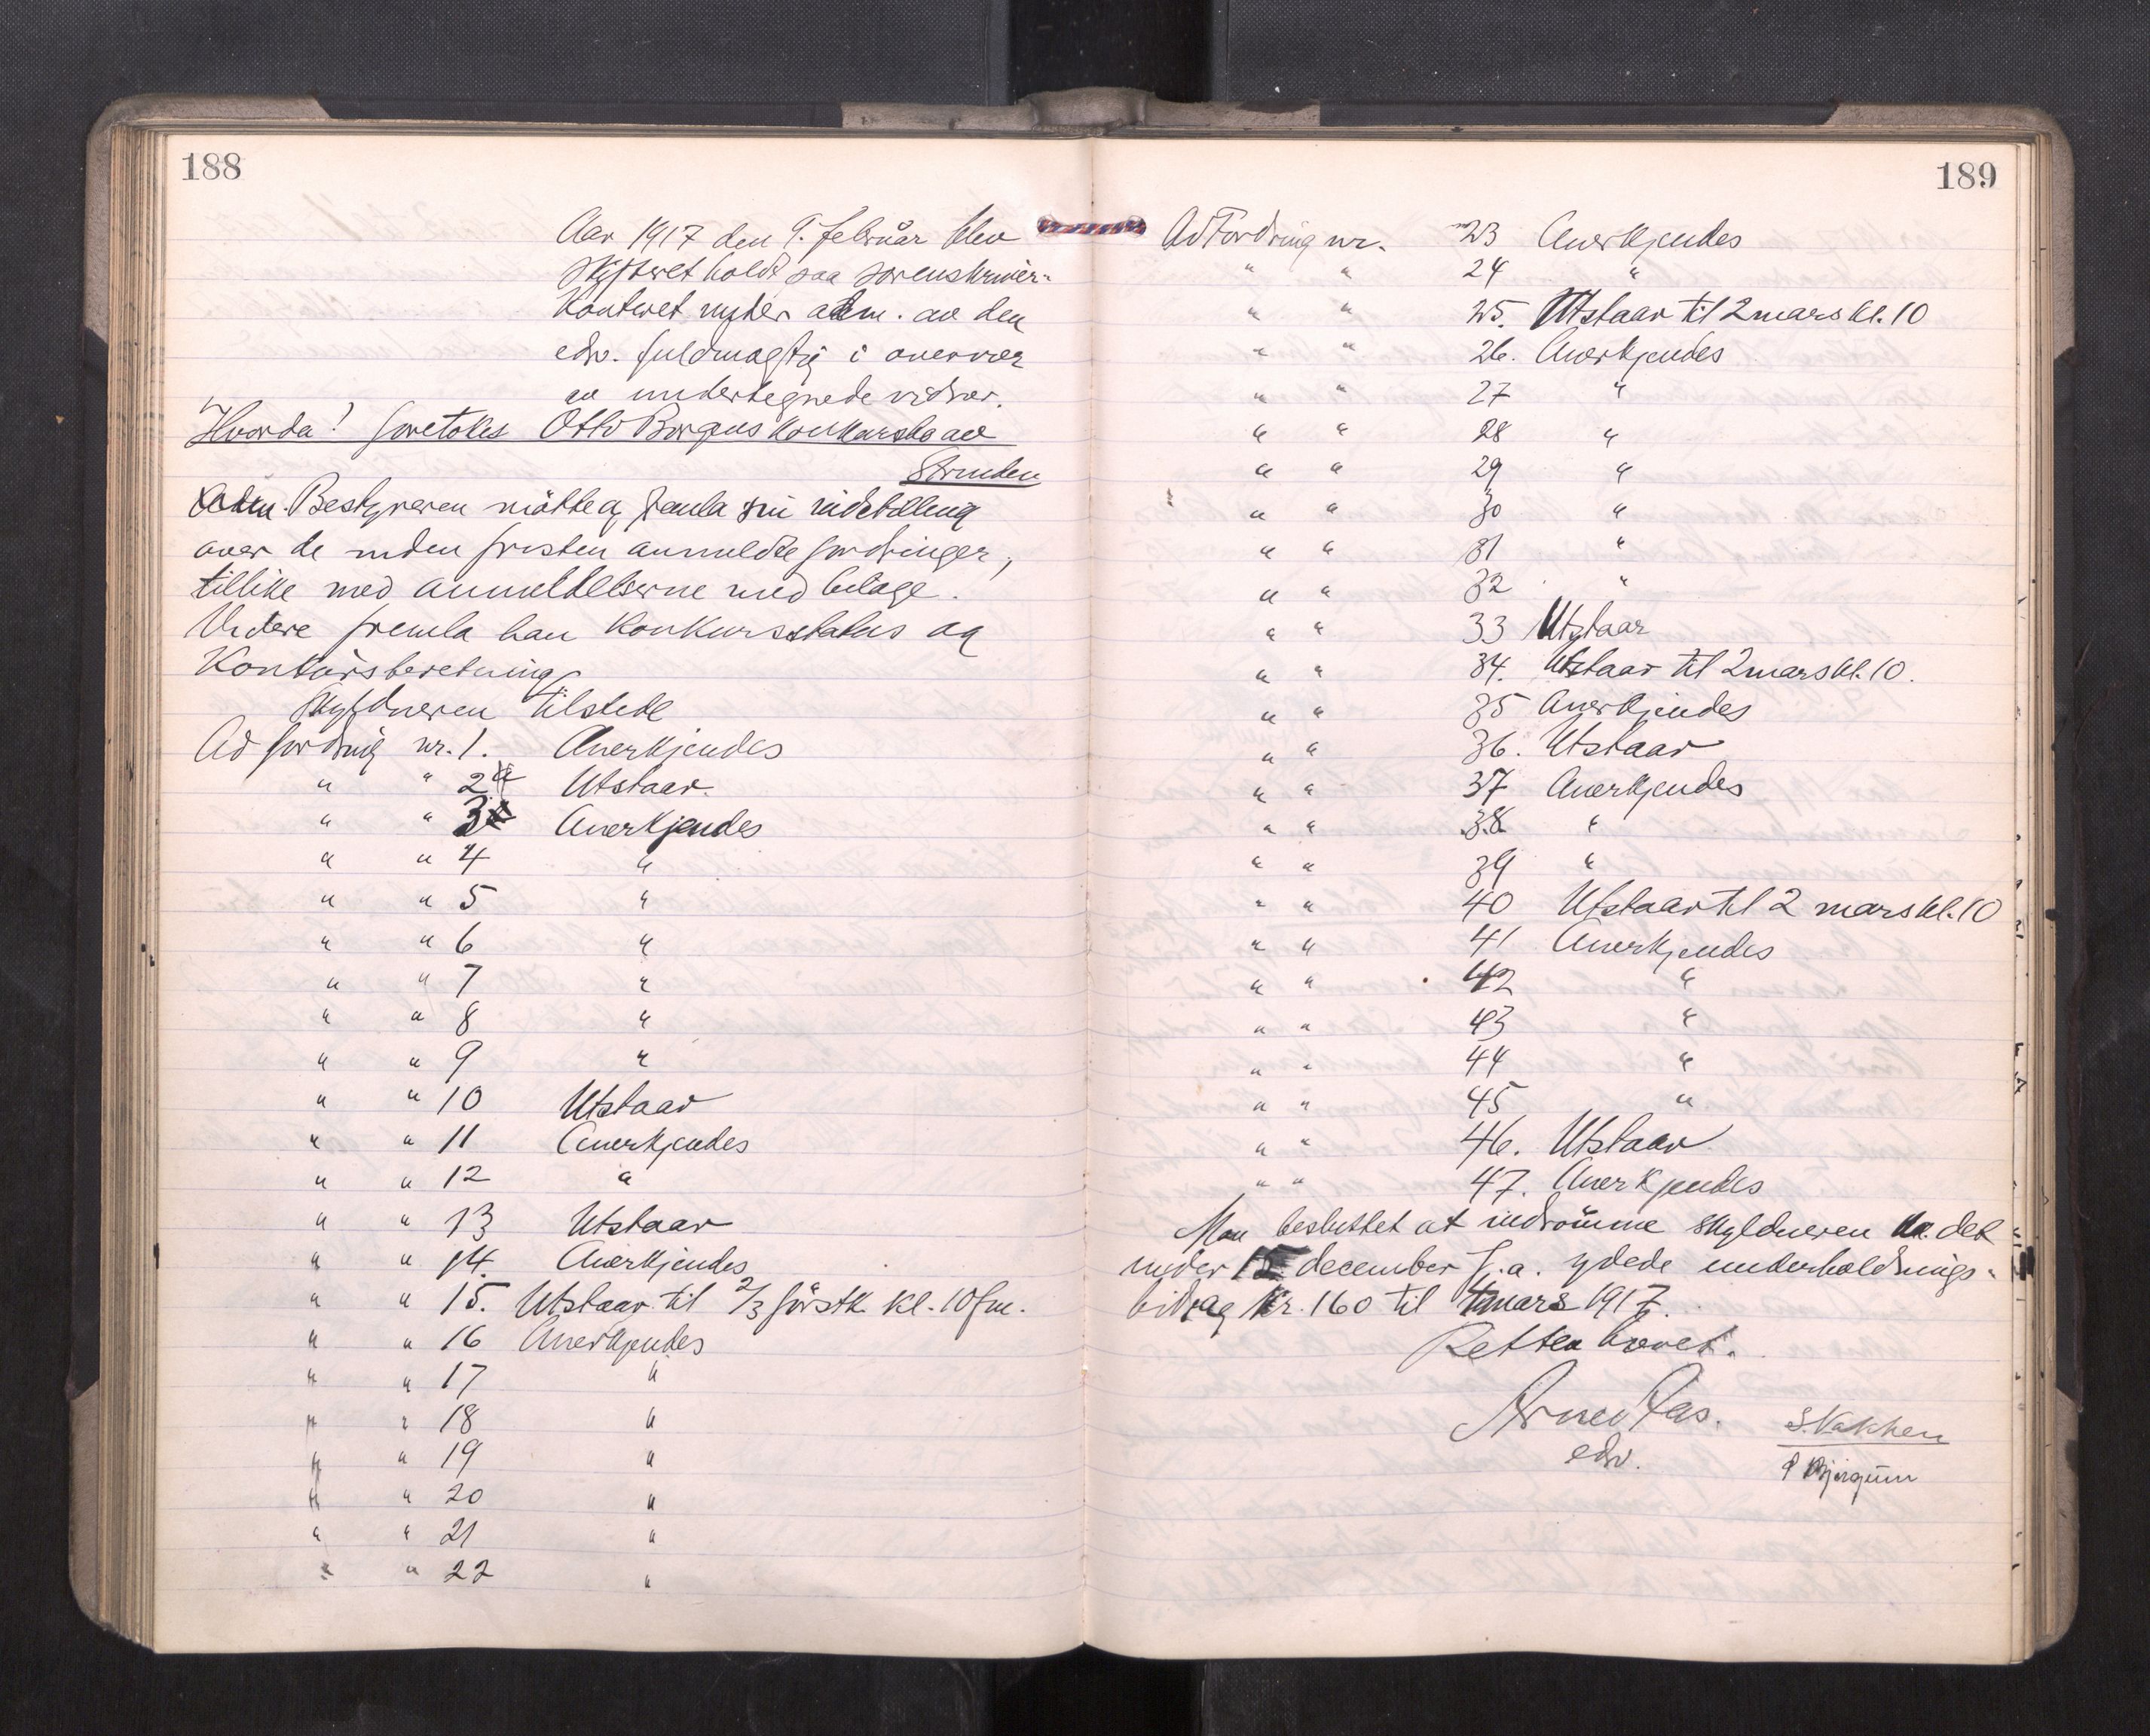 188
Aar 1917 den 9. februar blev
skifteret holdt paa sorenskriver-
kontoret under adm. av den
edsv. fuldmægtig i overvær
av undertegnede vidner.
Hvorda! foretokes Otto Borgens konkursbo av
Strinden
Bestyreren mötte og fremla sin indstilling
over de inden fristen anmeldte fordringer,
tillike med anmeldelserne med bilage.
Videre fremla han konkursstatus og
Konkursberetning
Skyldneren tilstede
Ad fordring nr. 1. Anerkjendes
" " 2 Utstaar.
" " 3 Anerkjendes
" " 4 "
" " 5 "
" " 6 "
" " 7 "
" " 8 "
" " 9 "
" " 10 Utstaar
" " 11 Anerkjendes
" " 12 "
" " 13 Utstaar
" " 14. Anerkjendes
" " 15. Utstaar til 2/3 förstk. kl. 10 fm.
" " 16 Anerkjendes
" " 17 "
" " 18 "
" " 19 "
" " 20 "
" " 21 "
" " 22 "
189
Ad Fordring nr. 23 Anerkjendes
" " 24 "
" " 25. Utstaar til 2 mars kl. 10
" " 26. Anerkjendes
" " 27 "
" " 28 "
" " 29 "
" " 30 "
" " 31 "
" " 32 "
" " 33 Utstaar
" " 34. Utstaar til 2 mars kl. 10.
" " 35 Anerkjendes
" " 36. Utstaar
" " 37 Anerkjendes
" " 38 "
" " 39 "
" " 40 Utstaar til 2 mars kl. 10
" " 41 Anerkjendes
" " 42 "
" " 43 "
" " 44 "
" " 45 "
" " 46. Utstaar
" " 47. Anerkjendes
Man besluttet at indrömme skyldneren det
under 15 december f.a. ydede underholdnings-
bidrag kr. 160 til 4 mars 1917.
Retten hævet.
Arne
edsv.
S. Vakken
P Bjørgum